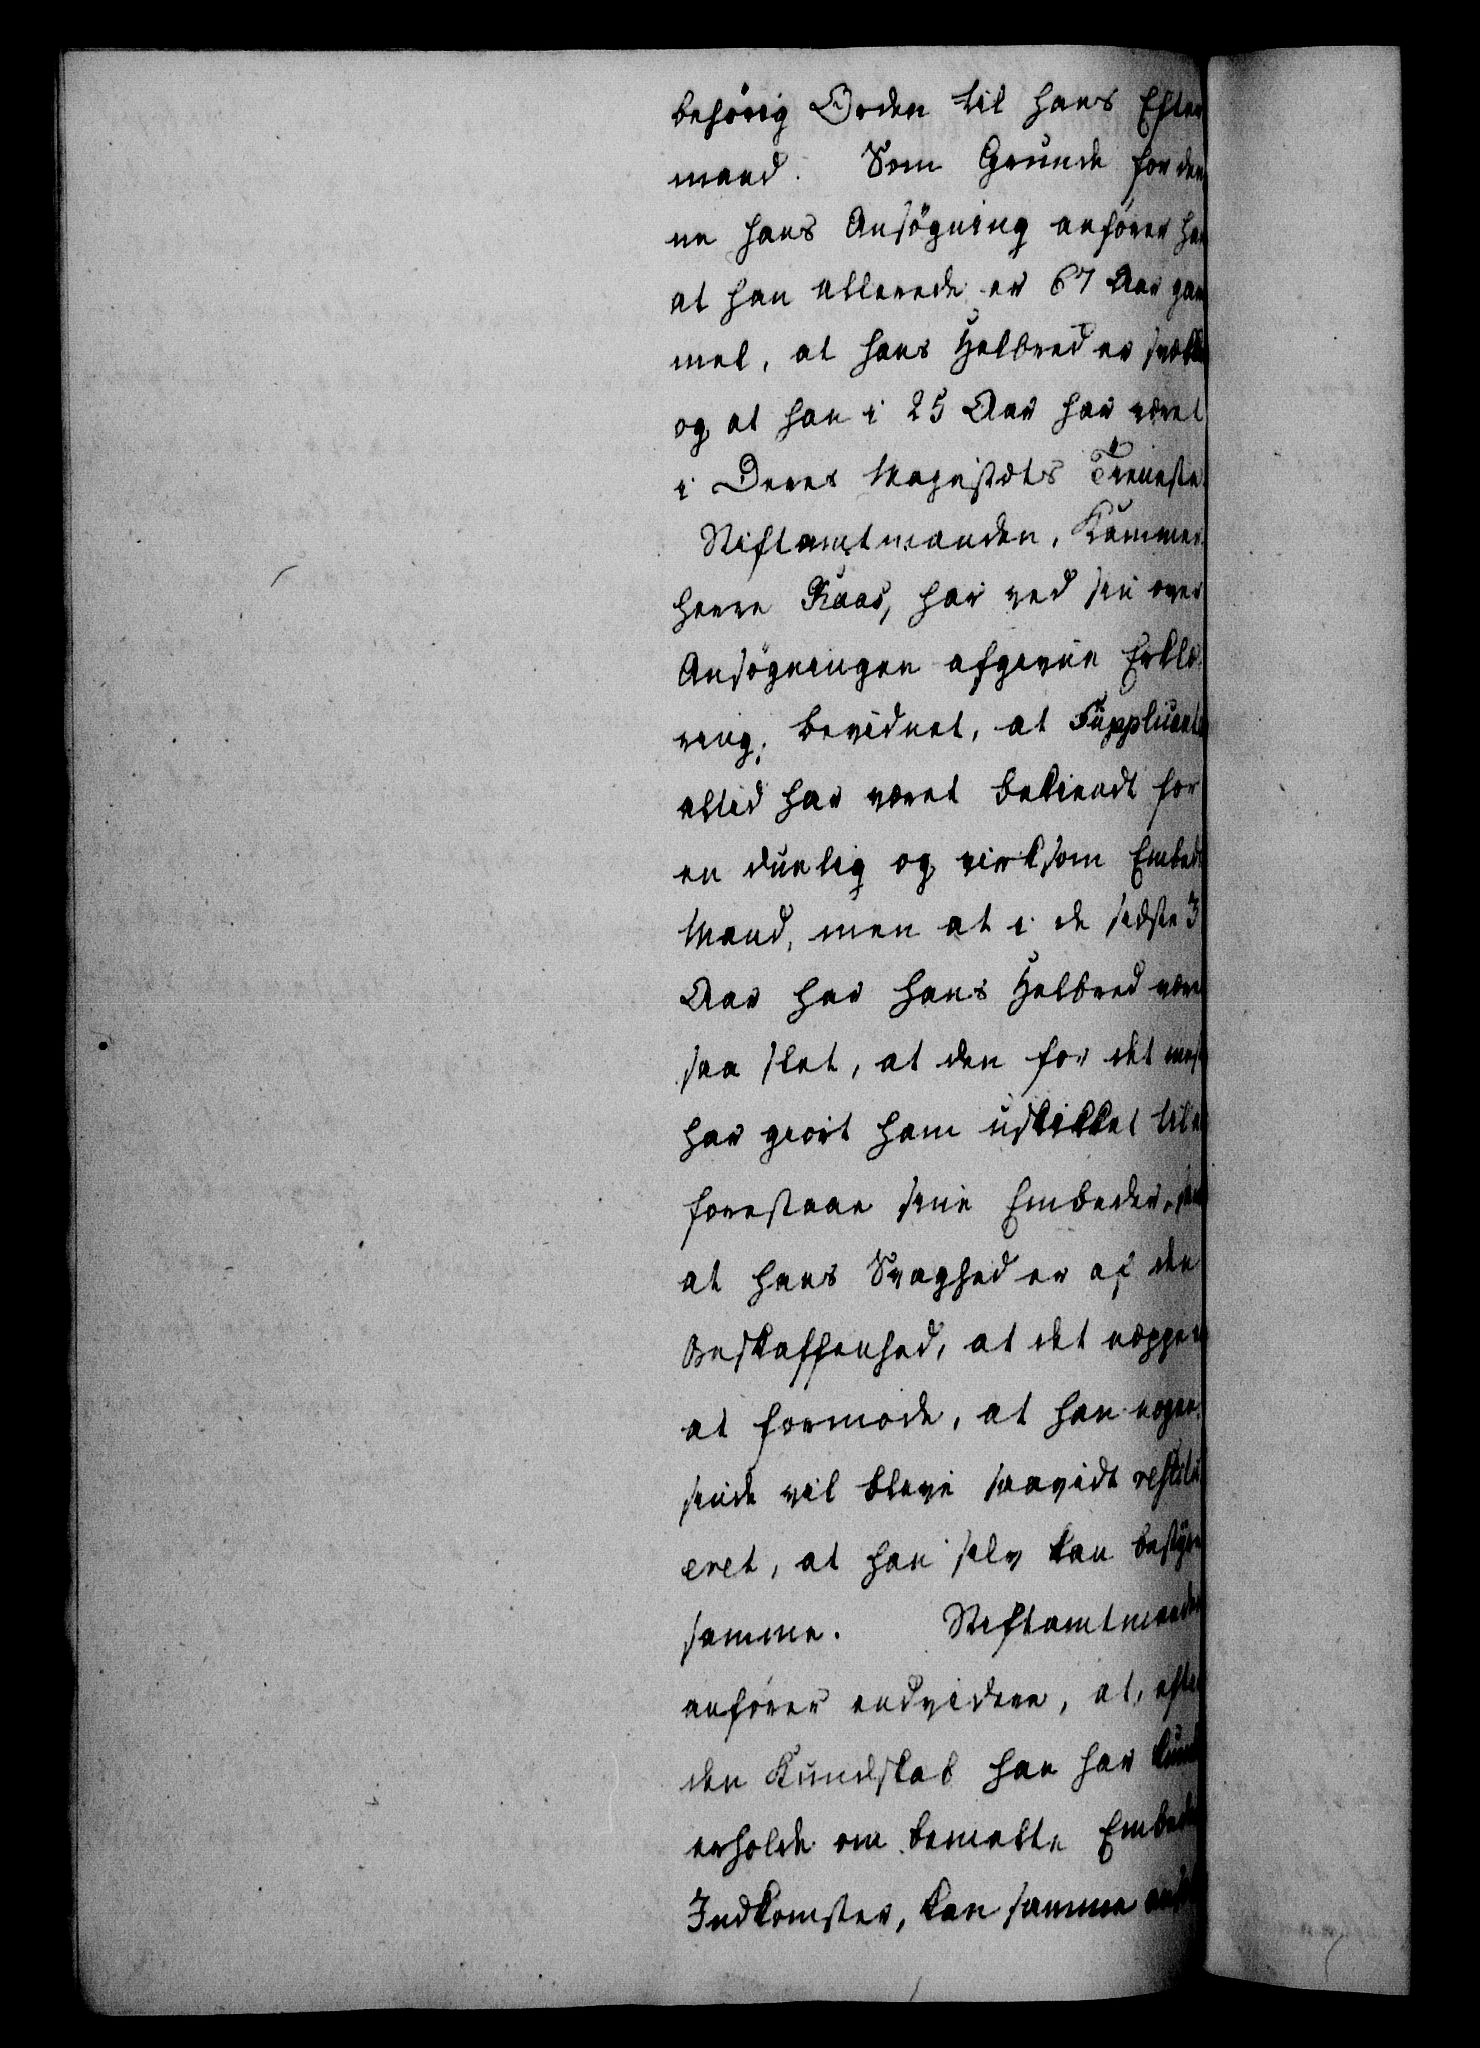 behörig Orden til hans Efter
mand. Som Grunde for den
ne hans Ansögning anfører han
at han allerede er 67 Aar gam
mel, at hans Helbred er svækket
og at han i 25 Aar har været
i Deres Majestæts Tieneste.
Stiftamtmanden, Kammer
herre Kaas, har ved sin over
Ansögningen afgivne Erklæ
ring, bevidnet, at Supplicanten
altid har været bekiendt for
en duelig og virksom Embeds
Mand, men at i de sidste 3
Aar har hans Helbred været
saa slet, at den for det meste
har giort ham udskikket til at
forestaae sine Embeder, samt
at hans Svaghed er af den
Beskaffenhed, at det neppe er
at formode, at han nogen
sinde vil blive saavidt restitu
eret, at han selv kan bestyre
samme. Stiftamtmanden
anfører endvidere, at, efter
den Kundskab han har kunnet
erholde om bemelte Embeders
Indkomster, kan samme